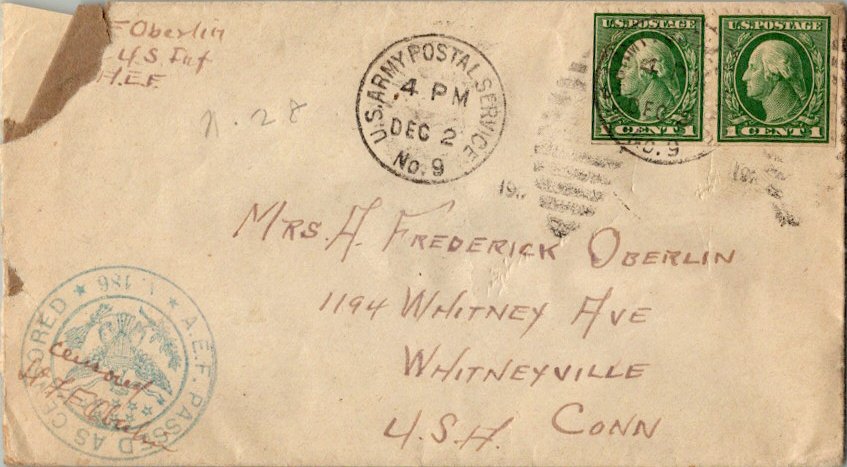 F Oberlin
U.S. Inf
A.E.F.
n. 28
U.S. ARMY POSTAL SERVICE
4 PM
DEC 2
No. 9
U.S. POSTAGE
1 CENT 1
U.S. POSTAGE
1 CENT 1
DEC
NO. 9
191
191
MRS. A. FREDERICK OBERLIN
1194 WHITNEY AVE
WHITNEYVILLE
CONN
U.S.A.
A.E.F. PASSED AS CENSORED
186
censored
A F Oberlin